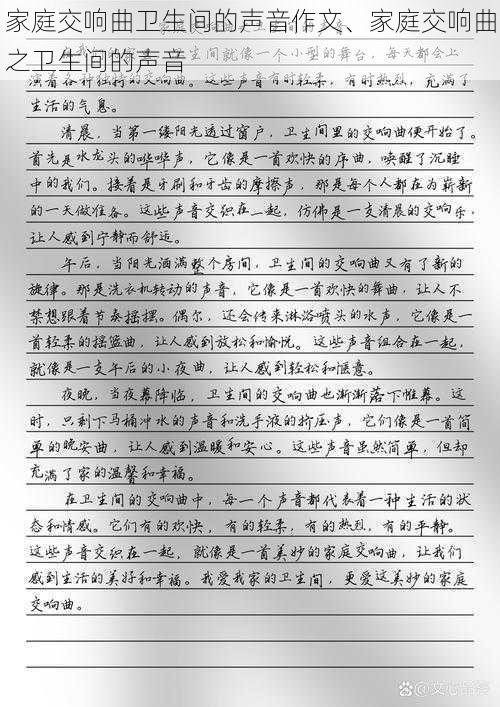 家庭交响曲卫生间的声音作文、家庭交响曲
之卫生间的声音
生间就像一个小型的舞台,每天都会上
演着各种独特的交响曲。这些声音有时轻柔,有时热烈,充满了
生活的气息。
清晨,当第一缕阳光透过窗户,卫生间里的交响曲便开始了。
首先是水龙头的哗哗声,它像是一首欢快的序曲,唤醒了沉睡
中的我们。接着是牙刷和牙齿的摩擦声,那是每个人都在为崭新
的一天做准备。这些声音交织在一起,仿佛是一支清晨的交响乐,
让人感到宁静而舒适。
午后,当阳光洒满整个房间,卫生间的交响曲又有了新的
旋律。那是洗衣机转动的声音,它像是一首欢快的舞曲,让人不
禁想跟着节奏摇摆。偶尔,还会传来淋浴喷头的水声,它像是一
首轻柔的摇篮曲,让人感到放松和愉悦。这些声音组合在一起,
就像是一支午后的小夜曲,让人感到轻松和惬意。
夜晚,当夜幕降临,卫生间的交响曲也渐渐落下帷幕。这
时,只剩下马桶冲水的声音和洗手液的挤压声,它们像是一首简
单的晚安曲,让人感到温暖和安心。这些声音虽然简单,但却
充满了家的温馨和幸福。
在卫生间的交响曲中,每一个声音都代表着一种生活的状
态和情感。它们有的欢快,有的轻柔,有的热烈,有的平静。
这些声音交织在一起,就像是一首美妙的家庭交响曲,让我们
感到生活的美好和幸福。我爱我家的卫生间,更爱这美妙的家庭
交响曲。